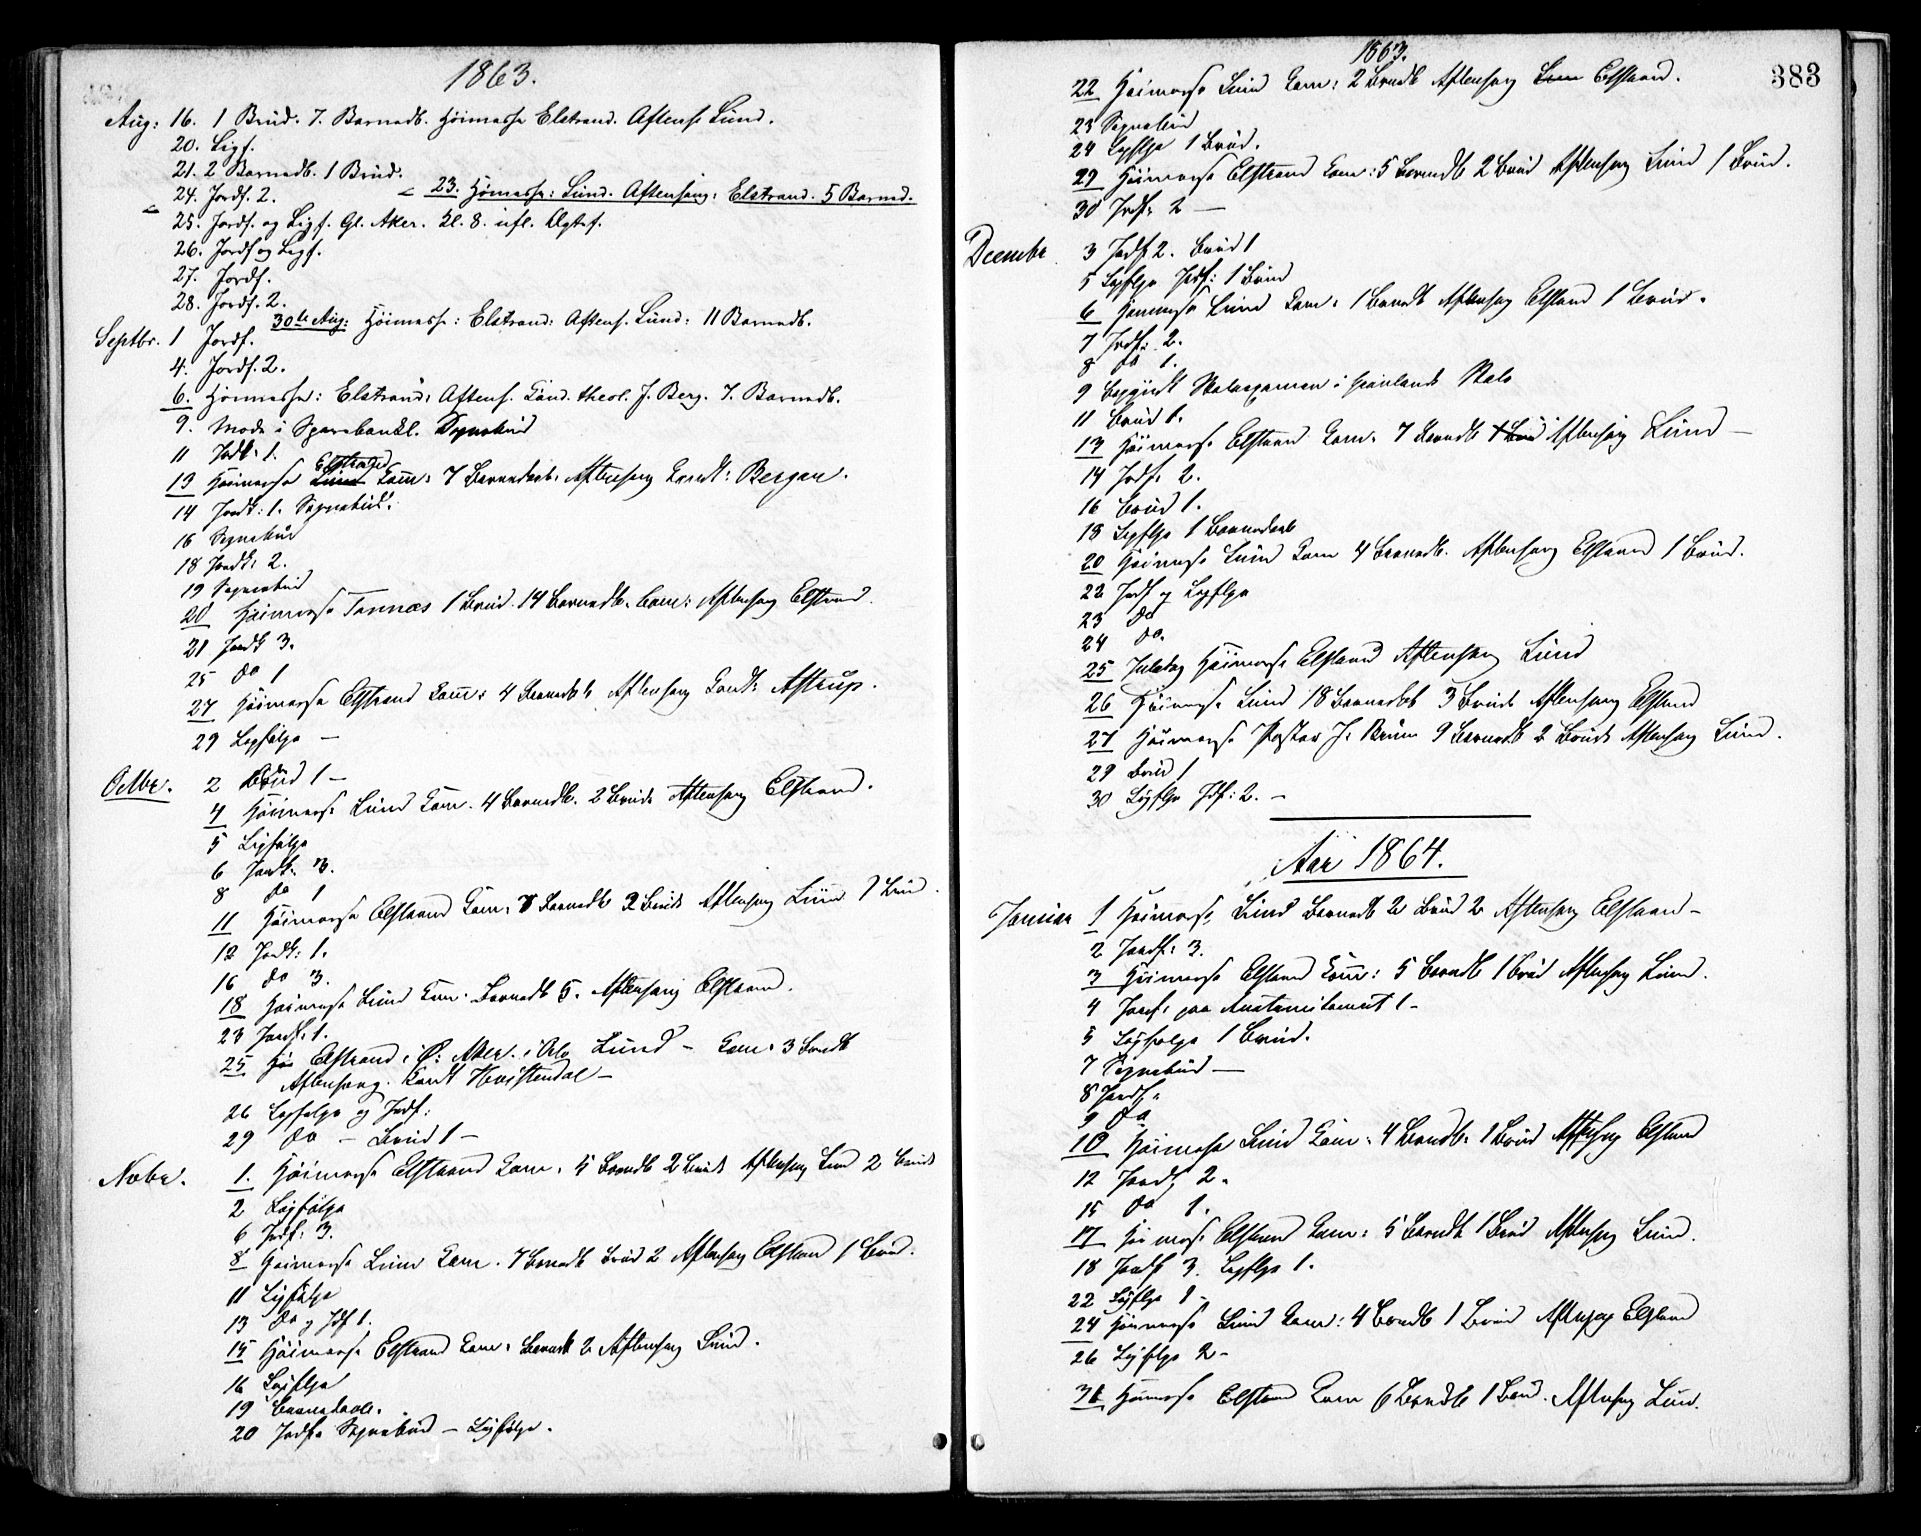 1863.
Aug: 16. 1 Brud. 7. Barnedb. Høimesse Elstrand. Aftens. Lund.
20. Ligf.
21. 2 Barnedb. 1 Brud.
23. Høimesse: Lund. Aftensang: Elstrand. 5 Barned.
24. Jordf. 2.
25. Jordf. og Ligf. Gl. Aker. Kl. 8.
26. Jordf og Ligf.
27. Jordf.
28. Jordf. 2.
30te Aug: Høimesse: Elstrand: Aftens. Lund: 11 Barnedb.
Septbr. 1 Jordf.
4. Jordf. 2.
6. Høimesse: Elstrand: Aftens. Cand. theol. J. Berg. 7. Barnedb.
9. Møde i Sparebankl. Sognebud
11 Jodf: 1.
13 Høimesse Lund Elstrand Com: 7 Barnedaab. Aftensang Candt: Bergan.
14 Jordf: 1. Sognebud.
16 Sognebud
18 Jordf: 2.
19 Sognebud
20 Høimesse Tannæs 1 Brud. 14 Barnedb. Com: Aftensang Elstrand.
21 Jordf 3.
25 do 1
27 Høimesse Elstrand Com: 4 Barnedb Aftensang Candt: Astrup.
29 Ligfølge —
Octbr. 2 Brud 1 —
4 Høimesse Lund Com. 4 Barnedb. 2 Brude Aftensang Elstrand.
5 Ligfølge
6 Jordf: 3.
8 do 1
11 Høimesse Elstrand Com: 8 Barnedb 2 Brude Aftensang Lund 1 Brud.
12 Jordf: 1.
16 do 3.
18 Høimesse Lund Com. Barnedb 5. Aftensang Elstrand.
23 Jordf: 1.
25 Høi Elstrand i Ø: Aker. Lund — Com: 3 Barndb
Aftensang. Candt Hvistendal —
26 Ligfølge og Jodf:
29 do — Brud 1 —
Novbr. 1. Høimesse Elstrand Com. 5 Barndb 2 Brude Aftensang Lund 2 Brude
2 Ligfølge
6 Jodf: 3.
8 Høimesse Lund Com. 7 Barnedb Brud 2 Aftensang Elstrand 1 Brud.
11 Ligfølge
13 do og Jdf 1.
15 Høimesse Elstrand Com. Barnedb 2 Aftensang Lund.
16 Ligflge
19 Barnedaab.
20 Jodf. Sognebud — Ligfølge.
383
1863.
22 Høimesse Lund Com: 2 Brudb Aftensang Elstrand.
23 Sognebud
24 Ligflge 1 Brud.
29 Høimesse Elstrand Com: 5 Barnedb 2 Brud Aftensang Lund 1 Brud.
30 Jodf: 2 —
Decembr. 3 Jodf 2. Brud 1
5 Ligflge Jodf: 1 Brud
6 Høimesse Lund Com. 1 Barndb Aftensang Elstrand 1 Brud.
7 Jodf: 2.
8 do 1.
9 Skoleexamen i Grønlands Skole
11 Brud 1.
13 Høimesse Elstrand Com. 7 Barndb 1 Brud Aftensang Lund —
14 Jodf. 2.
16 Brud 1.
18 Ligflge 1 Barnedaab
20 Høimesse Lund Com 4 Barnedb. Aftensang Elstrand 1 Brud.
22 Jodf og Ligflge
23 do
24 do.
25 Juledag Høimesse Elstrand Aftensang Lund
26 Høimesse Lund 18 Barnedb 3 Brude Aftensang Elstrand
27 Høimesse Pastor J. Bruun 9 Barnedb 2 Brude Aftensang Lund.
29 Brud 1
30 Ligflge Jdf: 2. —
Aar 1864.
Januar 1 Høimesse, Lund Barnedb 2 Brud 2 Aftensang Elstrand —
2 Jordf: 3.
3 Høimesse Elstrand Com: 5 Barndb 1 Brud Aftensang Lund.
4 Jordf. paa Anatomikamret 1 —
5 Ligfølge 1 Brud.
7 Sognebud —
8 Jordf.
9 do
10 Høimesse Lund Com. 4 Barndb. 1 Brud Aftensang Elstrand
12 Jordf 2.
15 do 1.
17 Høimesse Elstrand Com: 5 Barndb 1 Brud Aftensang Lund.
18 Jordf 3. Ligflge 1.
22 Ligflge 1 —
24 Høimesse Lund Com: 4 Barndb 1 Brud Aftensang Elstrand
26 Ligflge 2 —
31 Høimesse Elstrand Com 6 Barndb 1 Brud. Aftensang Lund.